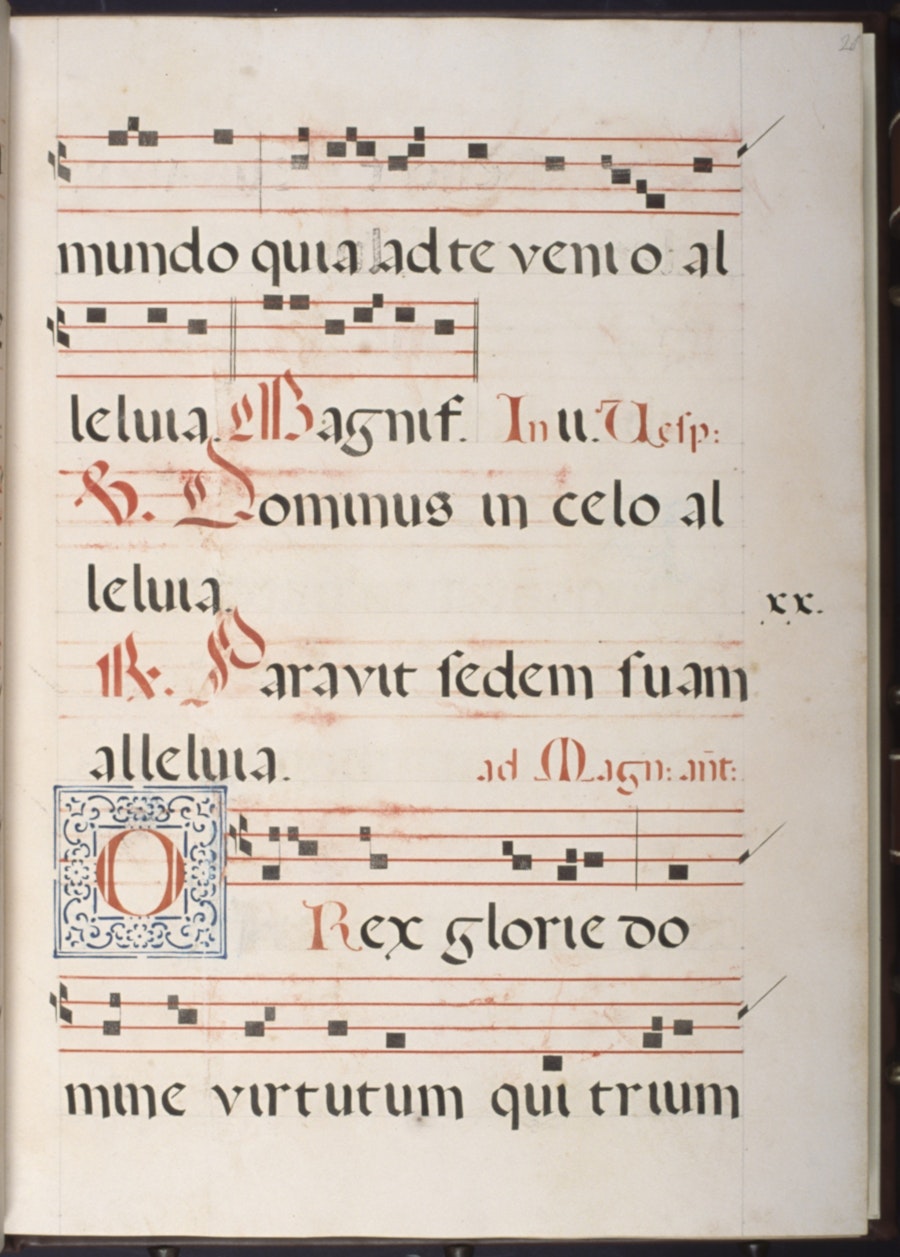 mundo quia ad te venio al
leluia. Magnif. In ii. Uesp:
℣. Dominus in celo al
leluia.
xx.
℟. Paravit ſedem ſuam
alleluia. ad Magn: añt:
O Rex glorie do
mine virtutum qui trium